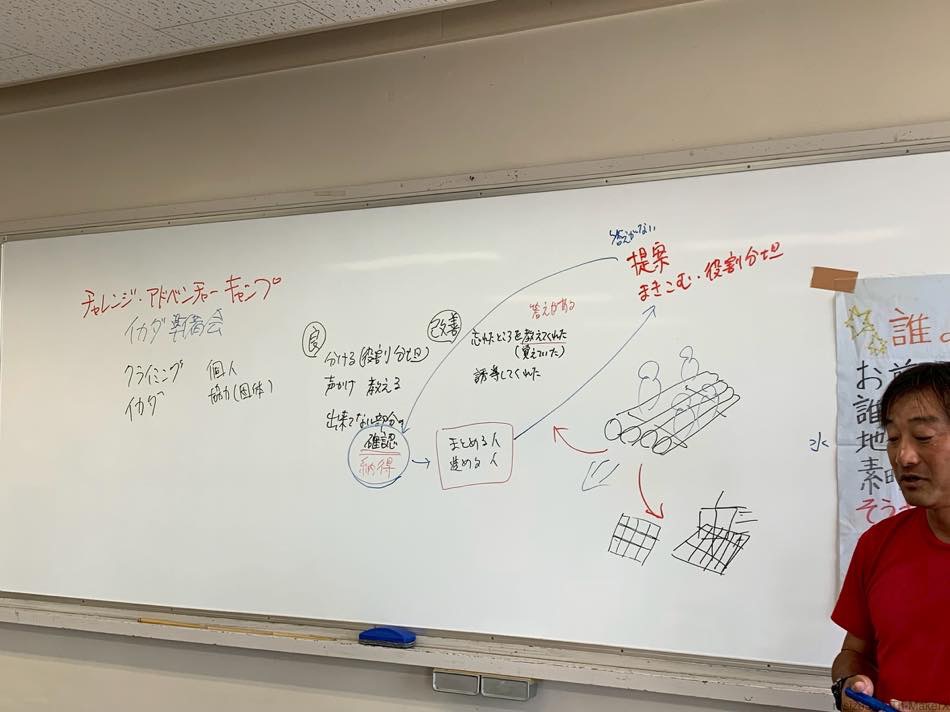 チャレンジ・アドベンチャーキャンプ
イカダ
クライミング 個人
イカダ 協力(団体)
良
分ける(役割分担)
声かけ 教える
出来てない部分の
確認
納得
まとめる人
進める人
改善
答えがある
忘れたところを教えてくれた
(覚えていた)
誘導してくれた
答えがない
提案
まきこむ・役割分担
水
誰
お前
誰
地
素
そう